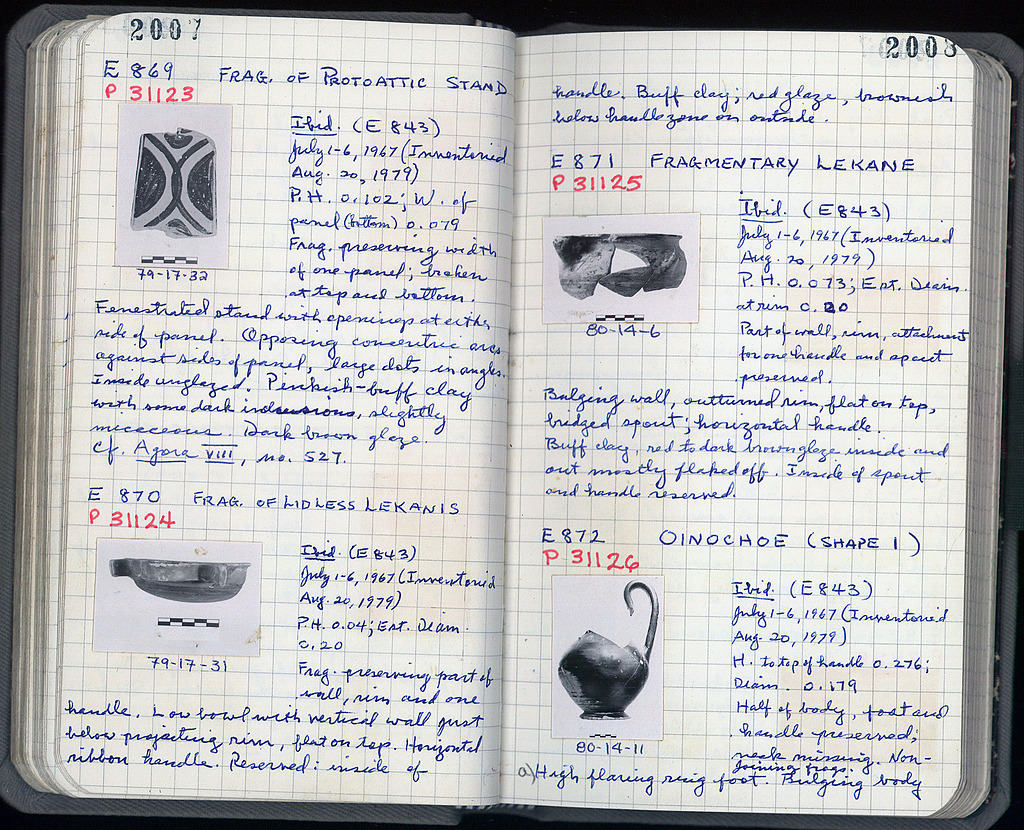 2007
E 869 FRAG. OF PROTOATTIC STAND
P 31123
Ibid. (E 843)
July 1-6, 1967 (Inventoried
Aug. 20, 1979)
P.H. 0.102; W. of
panel (bottom) 0.079
Frag. preserving width
of one panel; broken
at top and bottom.
79-17-32
Fenestrated stand with openings at either
side of panel. Opposing concentric arcs
against sides of panel, large dots in angles.
Inside unglazed. Pinkish-buff clay
with some dark inclusions, slightly
micaceous. Dark brown glaze.
Cf. Agora VIII, no. 527.
E 870 FRAG. OF LIDLESS LEKANIS
P 31124
Ibid. (E 843)
July 1-6, 1967 (Inventoried
Aug. 20, 1979)
P.H. 0.04; Est. Diam.
0.20
Frag. preserving part of
wall, rim and one
79-17-31
handle. Low bowl with vertical wall just
below projecting rim, flat on top. Horizontal
ribbon handle. Reserved: inside of
2008
handle. Buff clay; red glaze, brownish
below handle zone on outside.
E 871 FRAGMENTARY LEKANE
P 31125
Ibid. (E 843)
July 1-6, 1967 (Inventoried
Aug. 20, 1979)
P.H. 0.073; Est. Diam.
at rim 0.20
Part of wall, rim, attachment
for one handle and spout
preserved.
80-14-6
Bulging wall, outturned rim, flat on top,
bridged spout; horizontal handle.
Buff clay, red to dark brown glaze inside and
out mostly flaked off. Inside of spout
and handle reserved.
E 872 OINOCHOE (SHAPE I)
P 31126
Ibid. (E 843)
July 1-6, 1967 (Inventoried
Aug. 20, 1979)
H. to top of handle 0.276;
Diam. 0.179
Half of body, foot and
handle preserved;
neck missing. Non-
joining frags.
80-14-11
a) High flaring ring foot. Bulging body